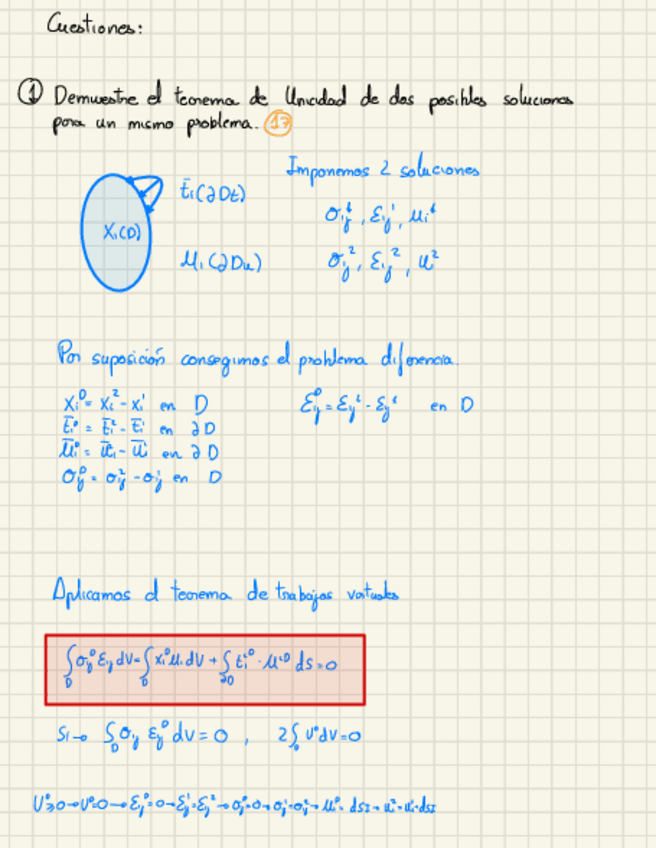 Cuestiones:
① Demuestre el teorema de Unicidad de dos posibles soluciones
para un mismo problema. ⑰
Imponemos 2 soluciones
t̄ᵢ(∂Dt)
σᵢⱼ¹, εᵢⱼ¹, uᵢ¹
Xᵢ(D)
uᵢ(∂Du)
σᵢⱼ², εᵢⱼ², u²
Por suposición conseguimos el problema diferencia.
Xᵢ⁰ = Xᵢ² - Xᵢ¹ en D
en D
t̄ᵢ⁰ = t̄ᵢ² - t̄ᵢ¹ en ∂D
ūᵢ⁰ = ūᵢ - ūᵢ en ∂D
σᵢⱼ⁰ = σᵢⱼ² - σᵢⱼ¹ en D
Aplicamos el teorema de trabajos virtuales
∫_D σᵢⱼ⁰ εᵢⱼ dV = ∫_D Xᵢ⁰ uᵢ dV + ∫_∂D tᵢ⁰ · uᵢ⁰ ds = 0
Si → ∫_D σᵢⱼ εᵢⱼ⁰ dV = 0 , 2∫_D U⁰ dV = 0
U⁰ ≥ 0 → U⁰ = 0 → εᵢⱼ⁰ = 0 → εᵢⱼ¹ = εᵢⱼ² → σᵢⱼ⁰ = 0 → σᵢⱼ¹ = σᵢⱼ² →